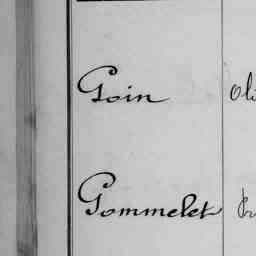 Goin Oli
Gommelet